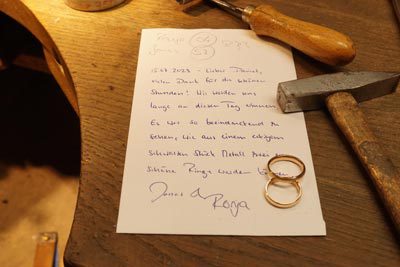 Roya
Jonas
15.07.2023 - Lieber Daniel,
vielen Dank für die schönen
Stunden! Wir werden uns
lange an diesen Tag erinnern.
Es war so beeindruckend zu
sehen, wie aus einem eckigen
schwarzen Stück Metall zwei
schöne Ringe werden
Jonas &
Roya